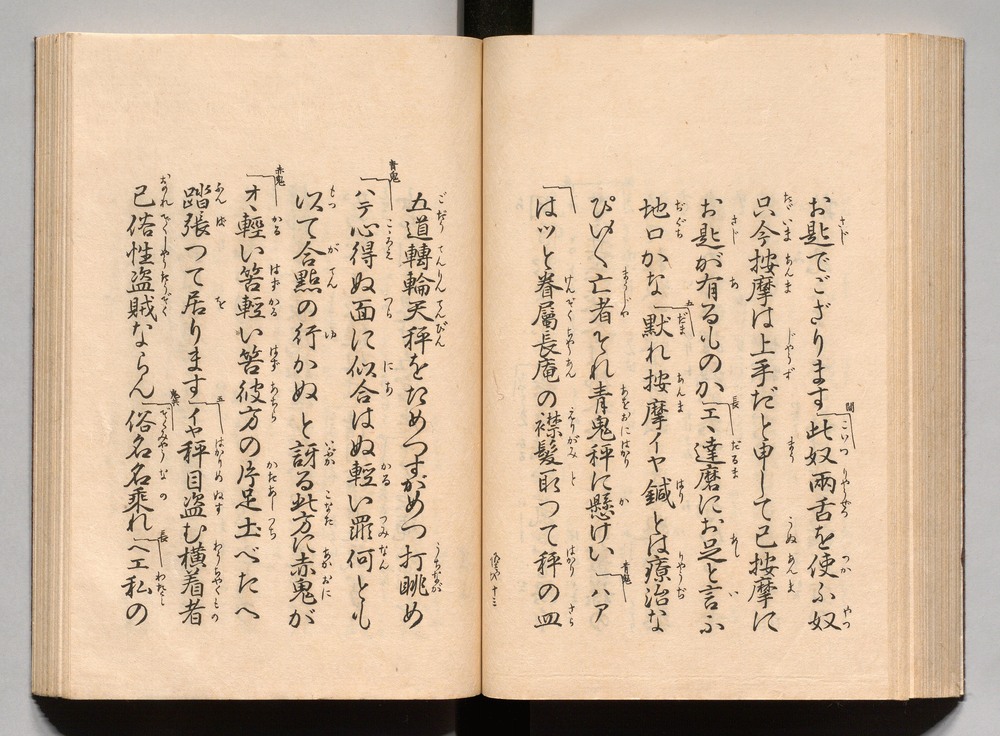 お匙でござります此奴兩舌を使ふ奴
只今按摩は上手だと申して己按摩に
お匙が有るものかエヽ達磨にお足と言ふ
地口かな默れ按摩イヤ鍼とは療治な
亡者それ青鬼秤に懸けいハア
はツと眷屬長庵の襟髮取つて秤の皿
五道轉輪天秤をためつすがめつ打眺め
ハテ心得ぬ面に似合はぬ輕い罪何とも
以て合點の行かぬと訝る此方に赤鬼が
オヽ輕い筈輕い筈彼方の片足土べたへ
踏張つて居りますイヤ秤目盗む横着者
己俗性盗賊ならん俗名名乘れヘエ私の